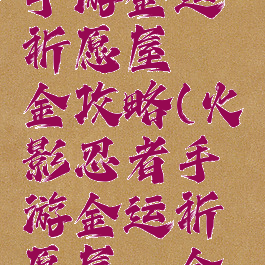 手游金运
祈愿屋
金攻略(火
影忍者手
游金运祈
愿屋 金